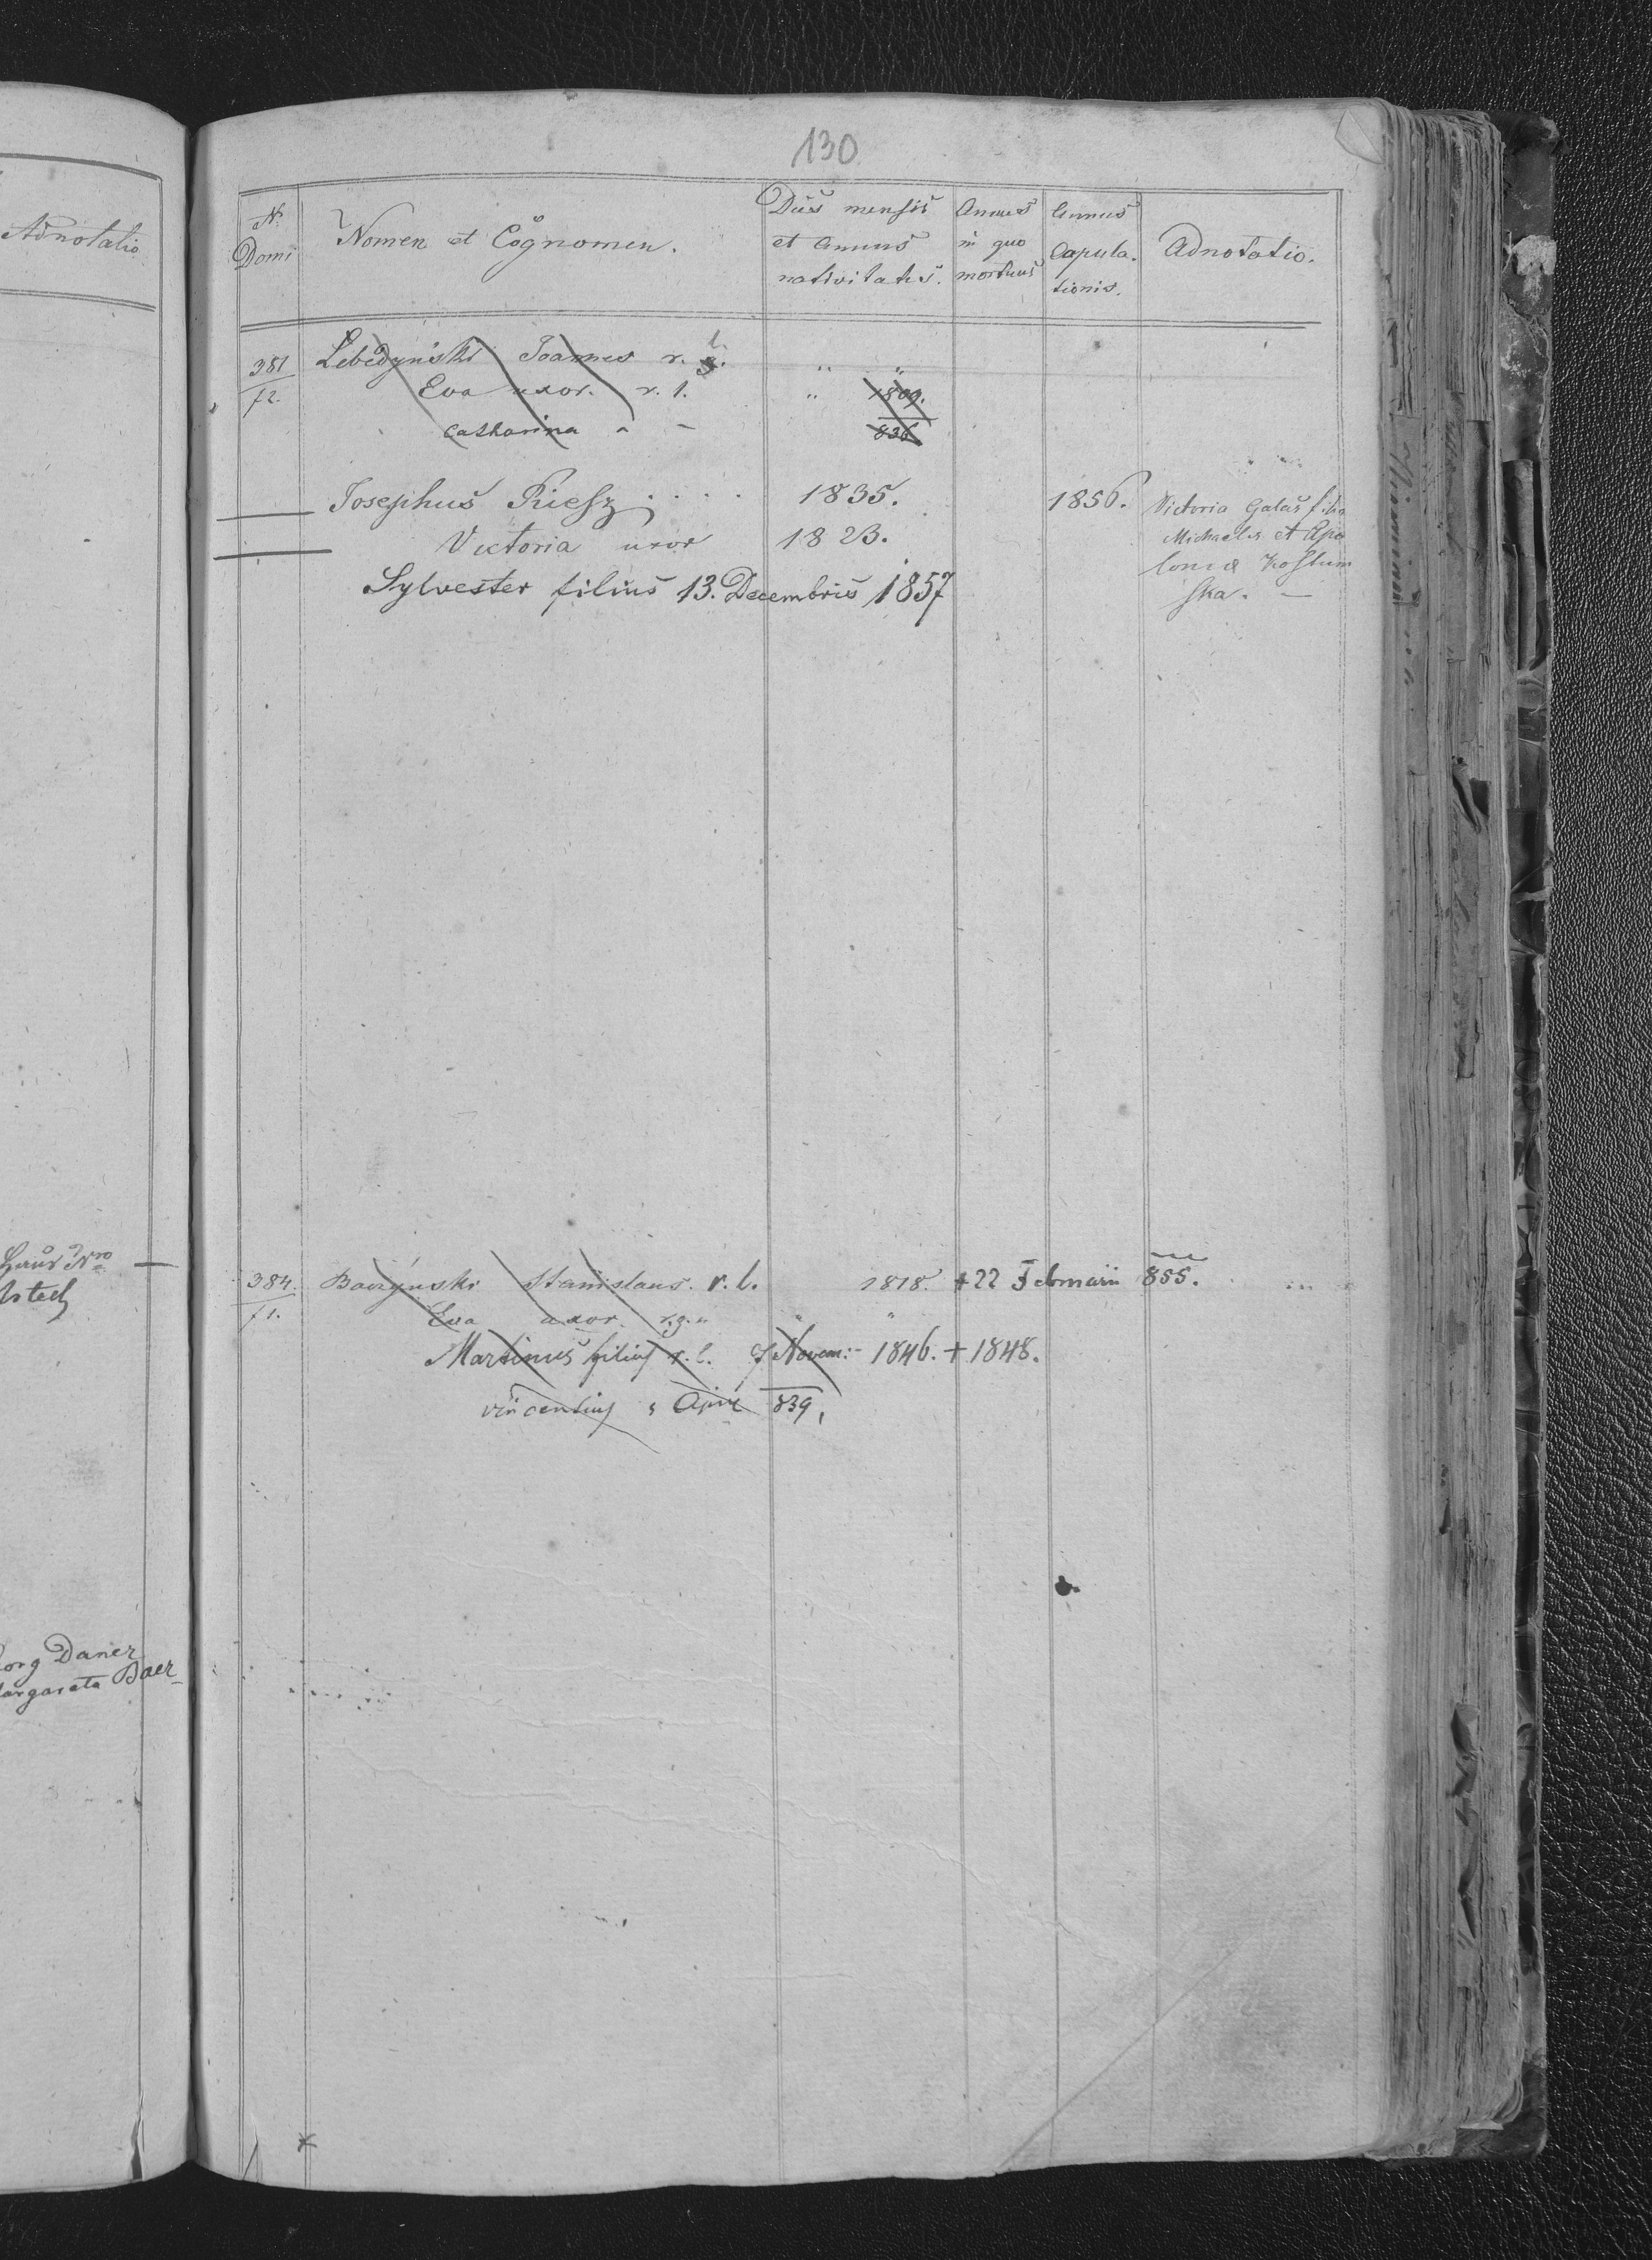 Adnotatio
130
N. Domi
Nomen et Cognomen.
Dies mensis et Annus nativitatis.
Annus in quo mortuus
Annus Copulationis.
Adnotatio.
381/f2. Lebedynski Joannes r. l. " "
Eva uxor. r. l. " 1809.
Catharina " - 836
Josephus Riesz . . . . 1835. 1856.
Victoria uxor 1823.
Sylvester filius 13. Decembris 1857
Victoria Galas filia
Michaelis et Apo
lonia Kostum
ska. —
384./f1. Baczynski Stanislaus. r. l. 1818. +22 Februarii 855.
Eva uxor. r.g. " " "
Martinus filius r. l. 7 Novem: - 1846. + 1848.
Vincentius 5 April 839,
org Daner
argareta Baer